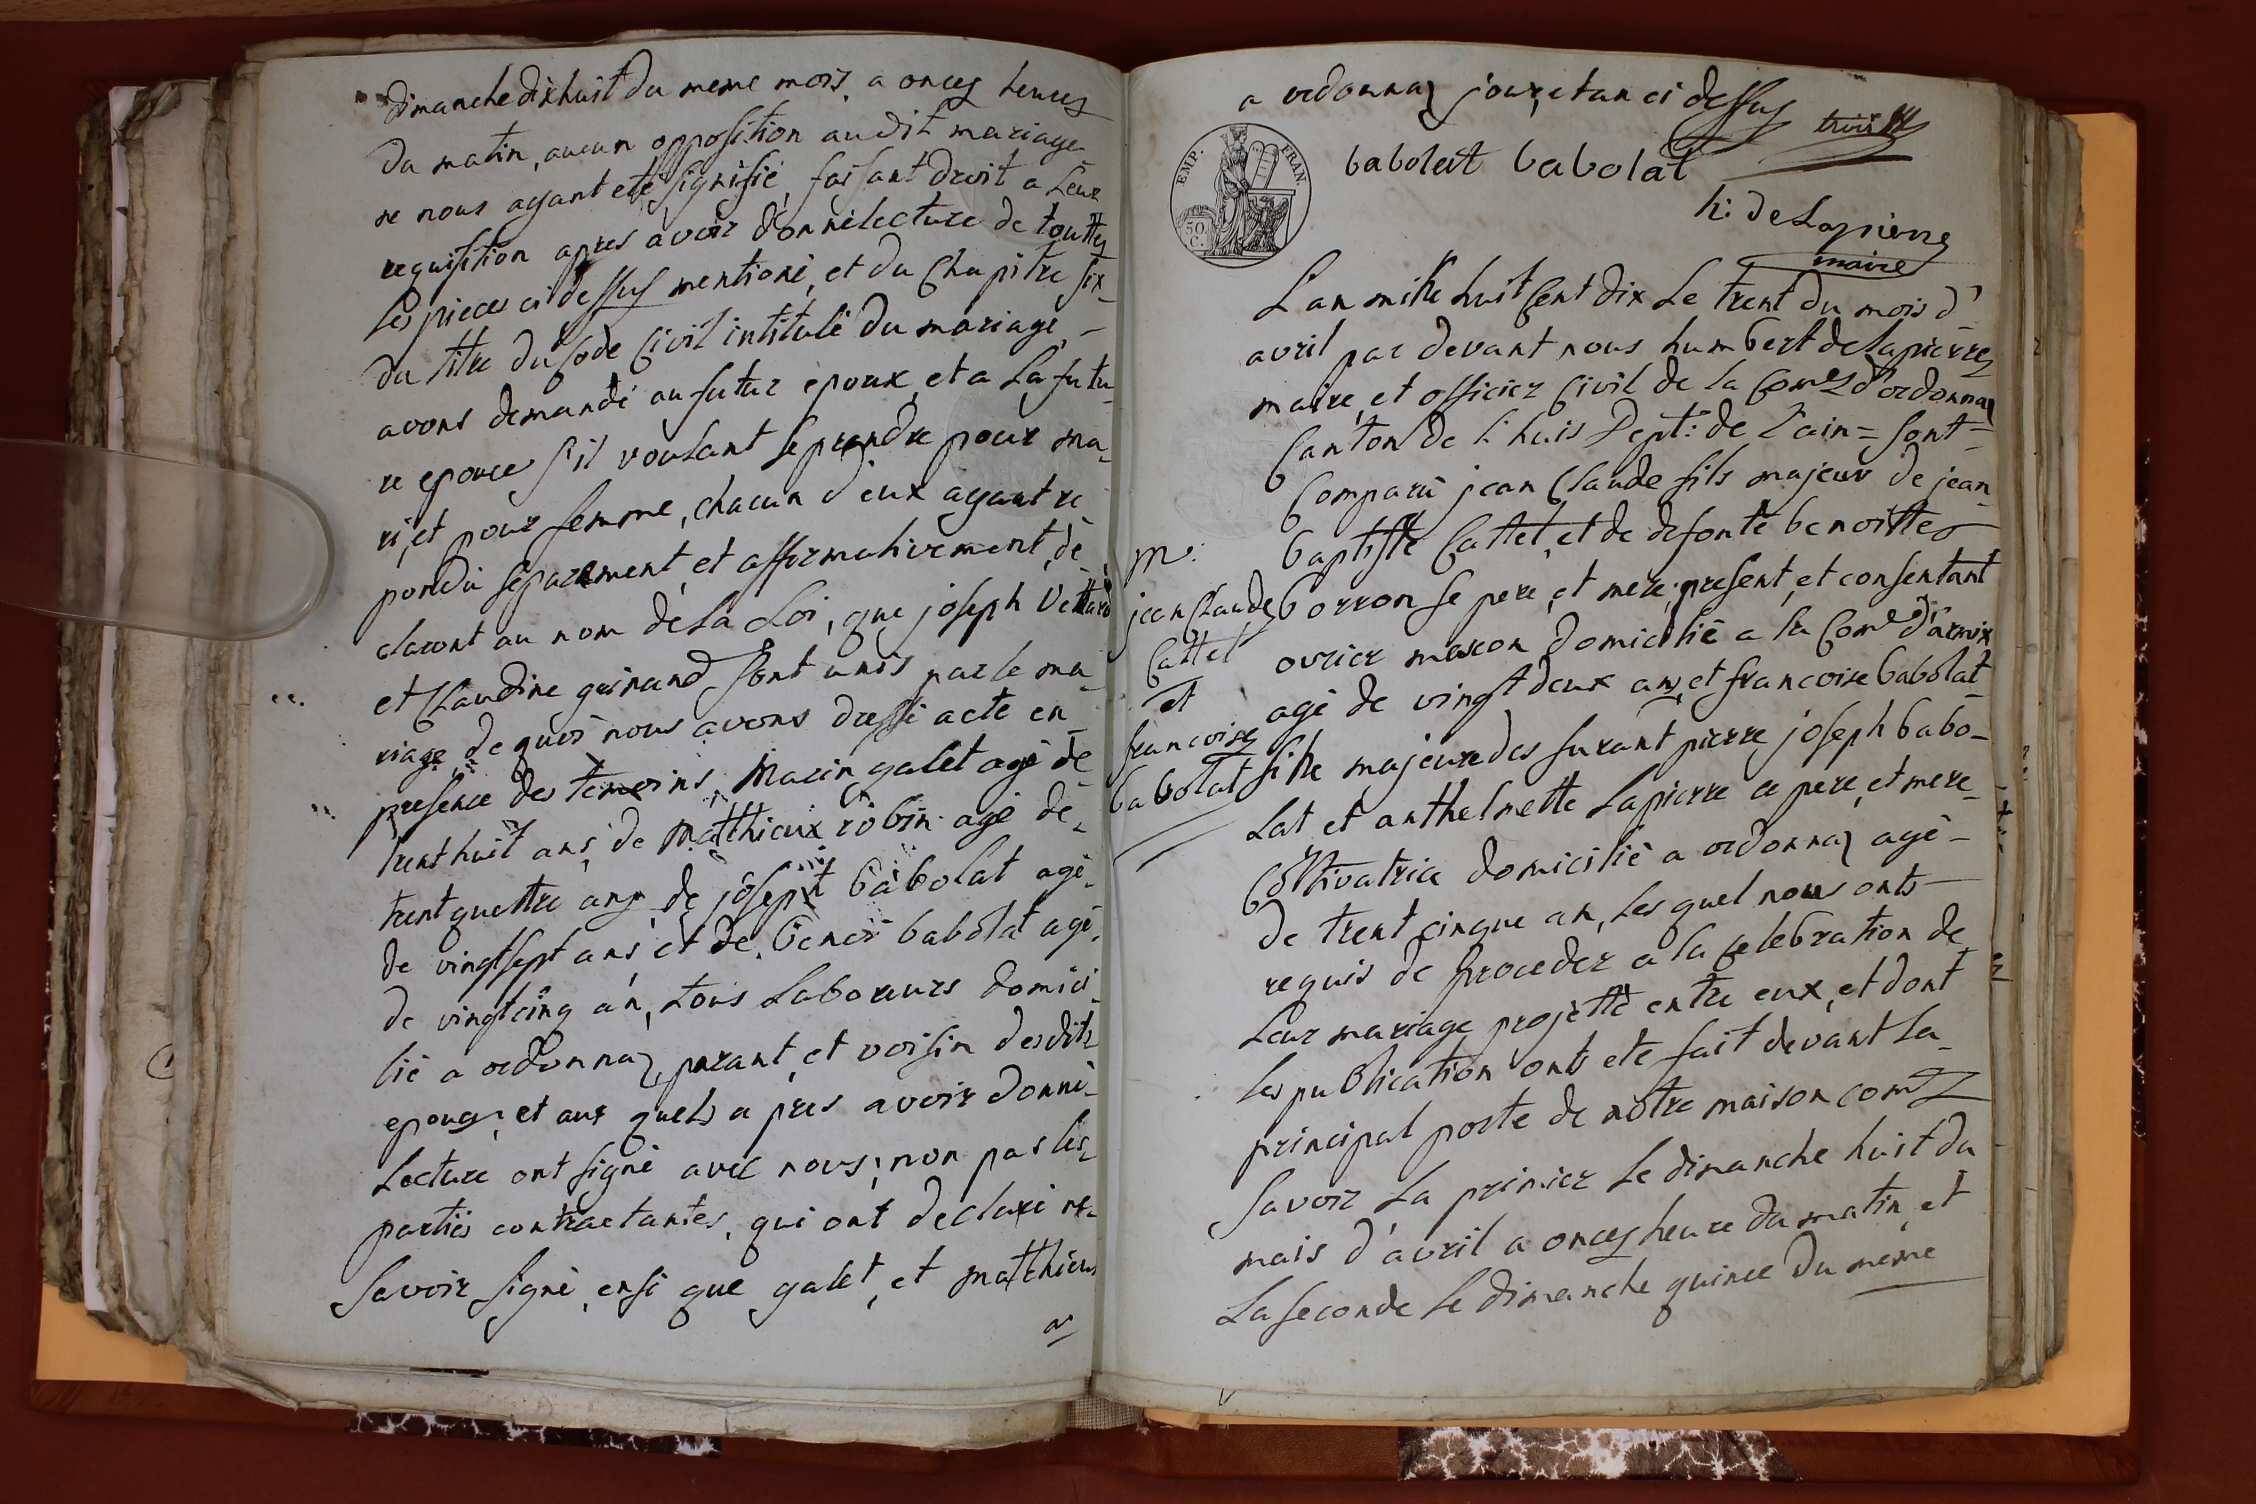 dimanche dixhuit du meme mois, a onces heures
du matin, aucun opposition audit mariage
ne nous ayant eté signifié, faisant droit a leur
requisition apres avoir donné lecture de touttes
les pieces ci dessus mentioné, et du chapitre six
du titre du Code Civil intitulé du mariage,
avons demandé au futur epoux, et a la futu-
re epouce s'il voulant se prendre pour ma-
ri, et pour femme, chacun d'eux ayant re-
pondu separement, et affirmativement, dé-
claront au nom de la Loi, que joseph Vettard
et Claudine guinand sont unis par le ma-
riage de quoi nous avons dressé acte en
presence des temoins, Marin galet agé de
trent huit ans, de Matthieux robin agé de
trent quattre ans de josept babolat agé
de vingtsept ans et de benoi babolat agé
de vingtcinq an, tous Laboreurs domici-
lié a ordonnaz, parant, et voisin desdits
epoux, et aux quels a pres avoir donné
Lecture ont signé avec nous, non pas les
parties contractantes, qui ont declaré ne
Savoir signé, ensi que galet, et matthieux
a ordonnaz jour, et an ci dessus
trois
babolat babolat
h: deLapierre
maire
EMP: FRAN.
50 C.
L'an mille huit Cent dix Le trent du mois d'
avril par devant nous humbert deLapierre
maire, et officier Civil de la Come d'ordonnaz
Canton de L'huis Dept: de L'ain = sont =
Comparu jean Claude fils majeur de jean
baptiste Cattet, et de defonte benoitte
borron se pere, et mere, present, et consentant
ovrier mascon domicillié a la Come d'armix
agé de vingt deux ans, et francoise babolat
fille majeure des furant pierre joseph babo-
lat et anthelmette Lapierre ce pere, et mere
Coltivatrice domicilié a ordonnaz agé
de trent cinque an, les quel nous onts
requis de proceder a la celebration de
Leur mariage projetté entre eux, et dont
les publication onts ete fait devant la
principal porte de notre maison come
Savoir La primier le dimanche huit du
mais d'avril a onces heure du matin, et
La seconde le dimanche quince du meme
m:
jean Claude
Cattet
et
francoise
babolat